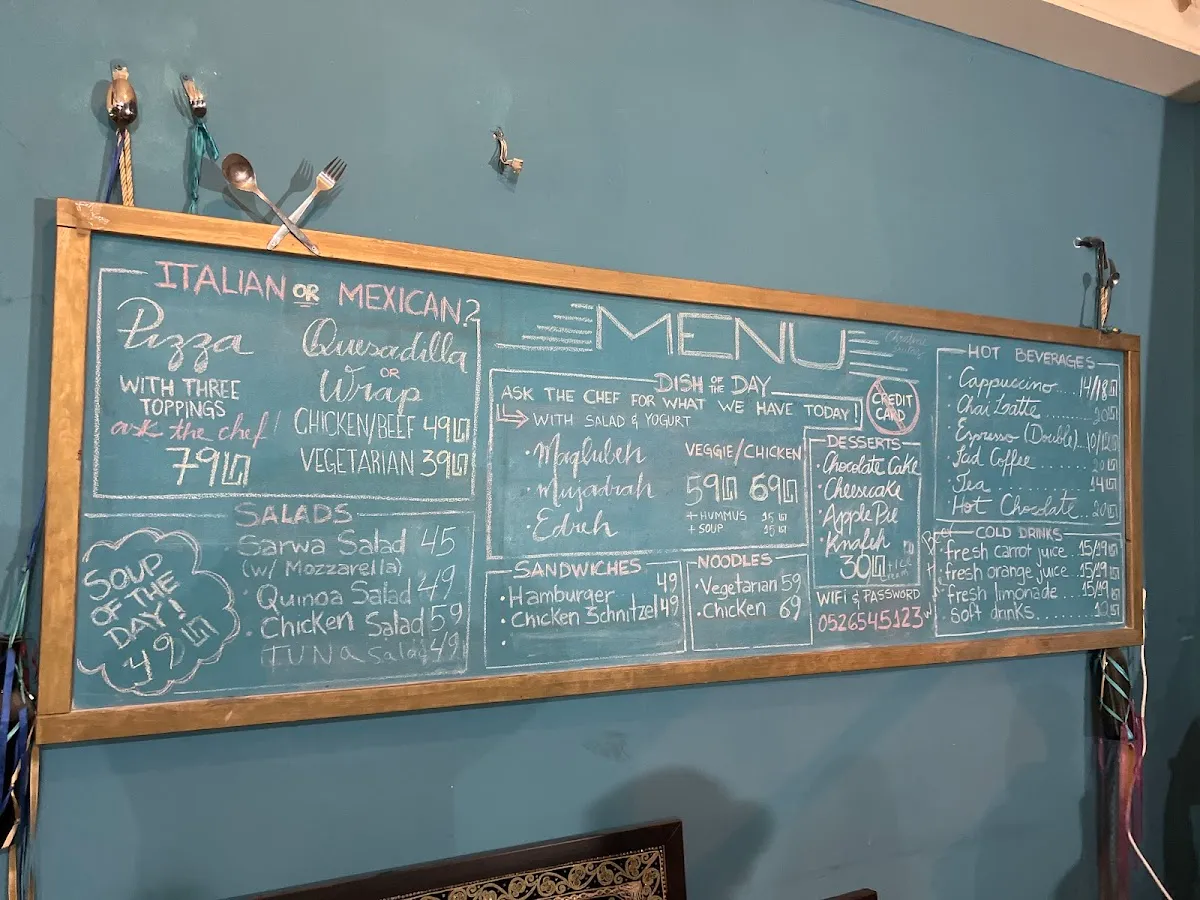 ITALIAN OR MEXICAN?
Pizza
WITH THREE
TOPPINGS
ask the chef!
79₪
Quesadilla
OR
Wrap
CHICKEN/BEEF 49₪
VEGETARIAN 39₪
SOUP
OF THE
DAY!
49₪
SALADS
Sarwa Salad 45
(w/ Mozzarella)
Quinoa Salad 49
Chicken Salad 59
TUNA Salad 49
MENU
DISH OF THE DAY
ASK THE CHEF FOR WHAT WE HAVE TODAY!
WITH SALAD & YOGURT
VEGGIE/CHICKEN
59₪ 69₪
+ HUMMUS 15₪
+ SOUP 15₪
· Maqlubeh
· Mujadrah
· Edreh
SANDWICHES
· Hamburger 49
· Chicken Schnitzel 49
NOODLES
· Vegetarian 59
· Chicken 69
CREDIT
CARD
DESSERTS
· Chocolate Cake
· Cheesecake
· Apple Pie
· Knafeh
30₪
WIFI & PASSWORD
0526545123
HOT BEVERAGES
· Cappuccino... 14/18₪
· Chai Latte ........ 20₪
· Espresso (Double).. 10/12₪
· Iced Coffee ....... 20₪
· Tea ........ 14₪
· Hot Chocolate.. 20₪
COLD DRINKS
· fresh carrot juice.. 15/19₪
· fresh orange juice.. 15/19₪
· fresh limonade.... 15/19₪
· Soft drinks......... 10₪